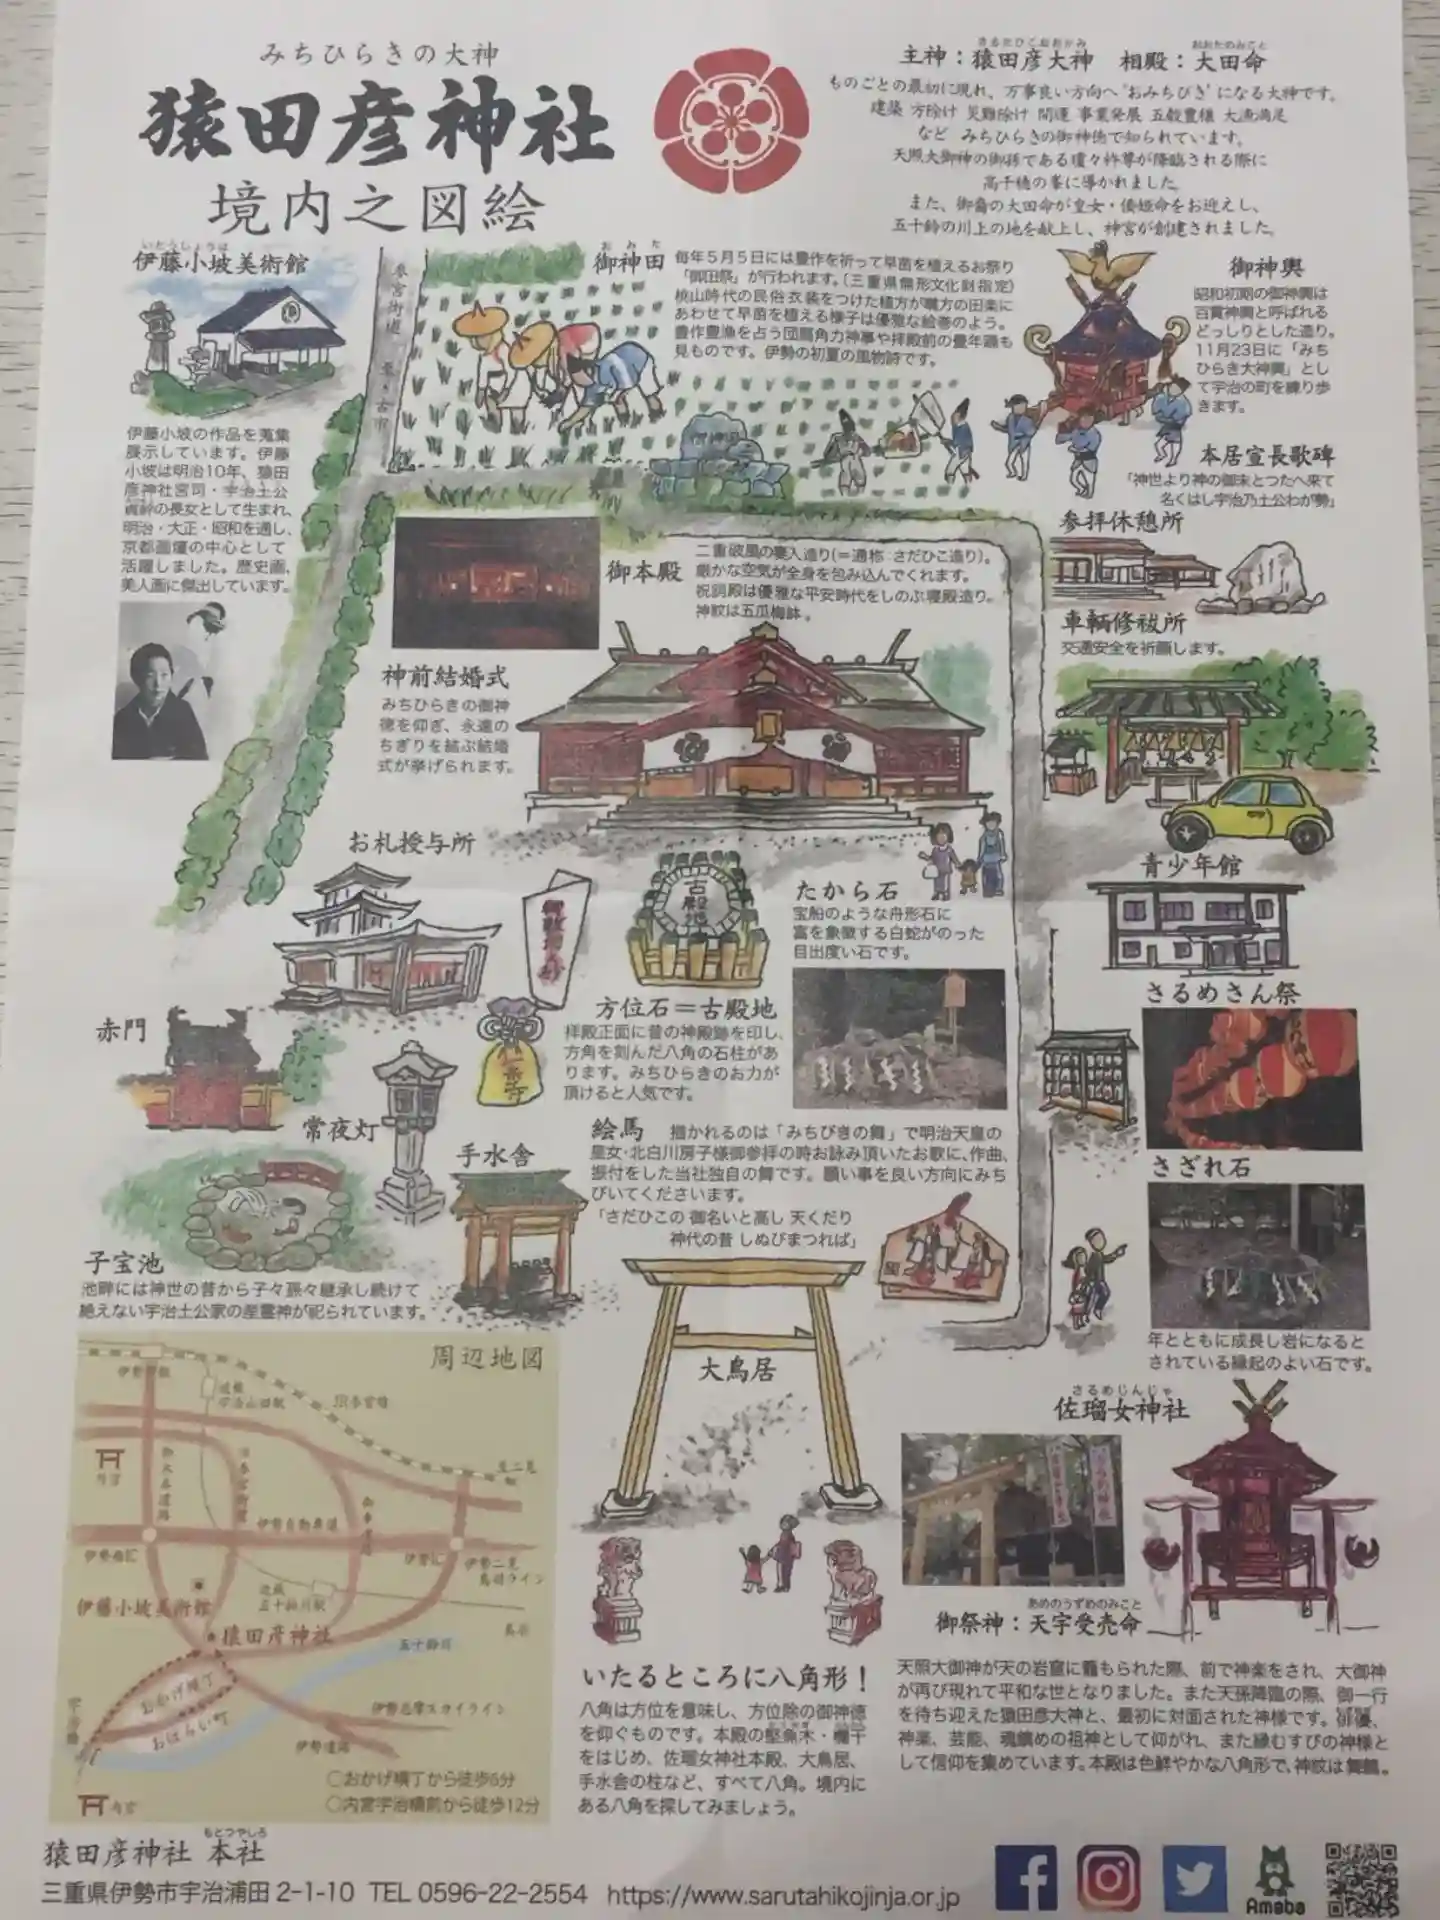 みちひらきの大神
猿田彦神社
境内之図絵
さるたひこおおかみ
おおたのみこと
主神：猿田彦大神 相殿：大田命
ものごとの最初に現れ、万事良い方向へ“おみちびき”になる大神です。
建築 方除け 災難除け 開運 事業発展 五穀豊穣 大漁満足
など みちひらきの御神徳で知られています。
天照大御神の御孫である瓊々杵尊が降臨される際に
高千穂の峯に導かれました。
また、御裔の大田命が皇女・倭姫命をお迎えし、
五十鈴の川上の地を献上し、神宮が創建されました。
いとうしょうは
伊藤小坡美術館
伊藤小坡の作品を蒐集
展示しています。伊藤
小坡は明治10年、猿田
彦神社宮司・宇治土公
貞幹の長女として生まれ、
明治・大正・昭和を通し、
京都画壇の中心として
活躍しました。歴史画、
美人画に傑出しています。
参宮街道
おみた
御神田
毎年５月５日には豊作を祈って早苗を植えるお祭り
「御田祭」が行われます。（三重県無形文化財指定）
桃山時代の民俗衣装をつけた植方が囃方の田楽に
あわせて早苗を植える様子は優雅な絵巻のよう。
豊作豊漁を占う団扇角力神事や拝殿前の豊年踊も
見ものです。伊勢の初夏の風物詩です。
御神輿
昭和初期の御神輿は
百貫神輿と呼ばれる
どっしりとした造り。
11月23日に「みち
ひらき大神輿」とし
て宇治の町を練り歩
きます。
本居宣長歌碑
「神世より神の御末とつたへ来て
名くはし宇治乃土公わが勢」
参拝休憩所
車輌修祓所
交通安全を祈願します。
御本殿
二重破風の妻入造り（＝通称：さだひこ造り）。
厳かな空気が全身を包み込んでくれます。
祝詞殿は優雅な平安時代をしのぶ寝殿造り。
神紋は五瓜梅鉢。
神前結婚式
みちひらきの御神
徳を仰ぎ、永遠の
ちぎりを結ぶ結婚
式が挙げられます。
お札授与所
古殿地
たから石
宝船のような舟形石に
富を象徴する白蛇がのった
目出度い石です。
青少年館
さるめさん祭
方位石＝古殿地
拝殿正面に昔の神殿跡を印し、
方角を刻んだ八角の石柱があ
ります。みちひらきのお力が
頂けると人気です。
赤門
常夜灯
手水舎
絵馬 描かれるのは「みちびきの舞」で明治天皇の
皇女・北白川房子様御参拝の時お詠み頂いたお歌に、作曲、
振付をした当社独自の舞です。願い事を良い方向にみち
びいてくださいます。
「さだひこの 御名いと高し 天くだり
神代の昔 しぬびまつれば」
さざれ石
年とともに成長し岩になると
されている縁起のよい石です。
子宝池
池畔には神世の昔から子々孫々継承し続けて
絶えない宇治土公家の産霊神が祀られています。
周辺地図
JR参宮線
外宮
伊勢自動車道
伊勢二見
鳥羽ライン
近鉄
五十鈴川駅
伊藤小坡美術館
猿田彦神社
五十鈴川
おかげ横丁
おはらい町
伊勢志摩スカイライン
伊勢道路
内宮
○おかげ横丁から徒歩6分
○内宮宇治橋前から徒歩12分
大鳥居
さるめじんじゃ
佐瑠女神社
あめのうずめのみこと
御祭神：天宇受売命
天照大御神が天の岩窟に籠もられた際、前で神楽をされ、大御神
が再び現れて平和な世となりました。また天孫降臨の際、御一行
を待ち迎えた猿田彦大神と、最初に対面された神様です。俳優、
神楽、芸能、魂鎮めの祖神として仰がれ、また縁むすびの神様と
して信仰を集めています。本殿は色鮮やかな八角形で、神紋は舞鶴。
いたるところに八角形！
八角は方位を意味し、方位除の御神徳
を仰ぐものです。本殿の堅魚木・欄干
をはじめ、佐瑠女神社本殿、大鳥居、
手水舎の柱など、すべて八角。境内に
ある八角を探してみましょう。
もとつやしろ
猿田彦神社 本社
三重県伊勢市宇治浦田 2-1-10 TEL 0596-22-2554 https://www.sarutahikojinja.or.jp
Ameba